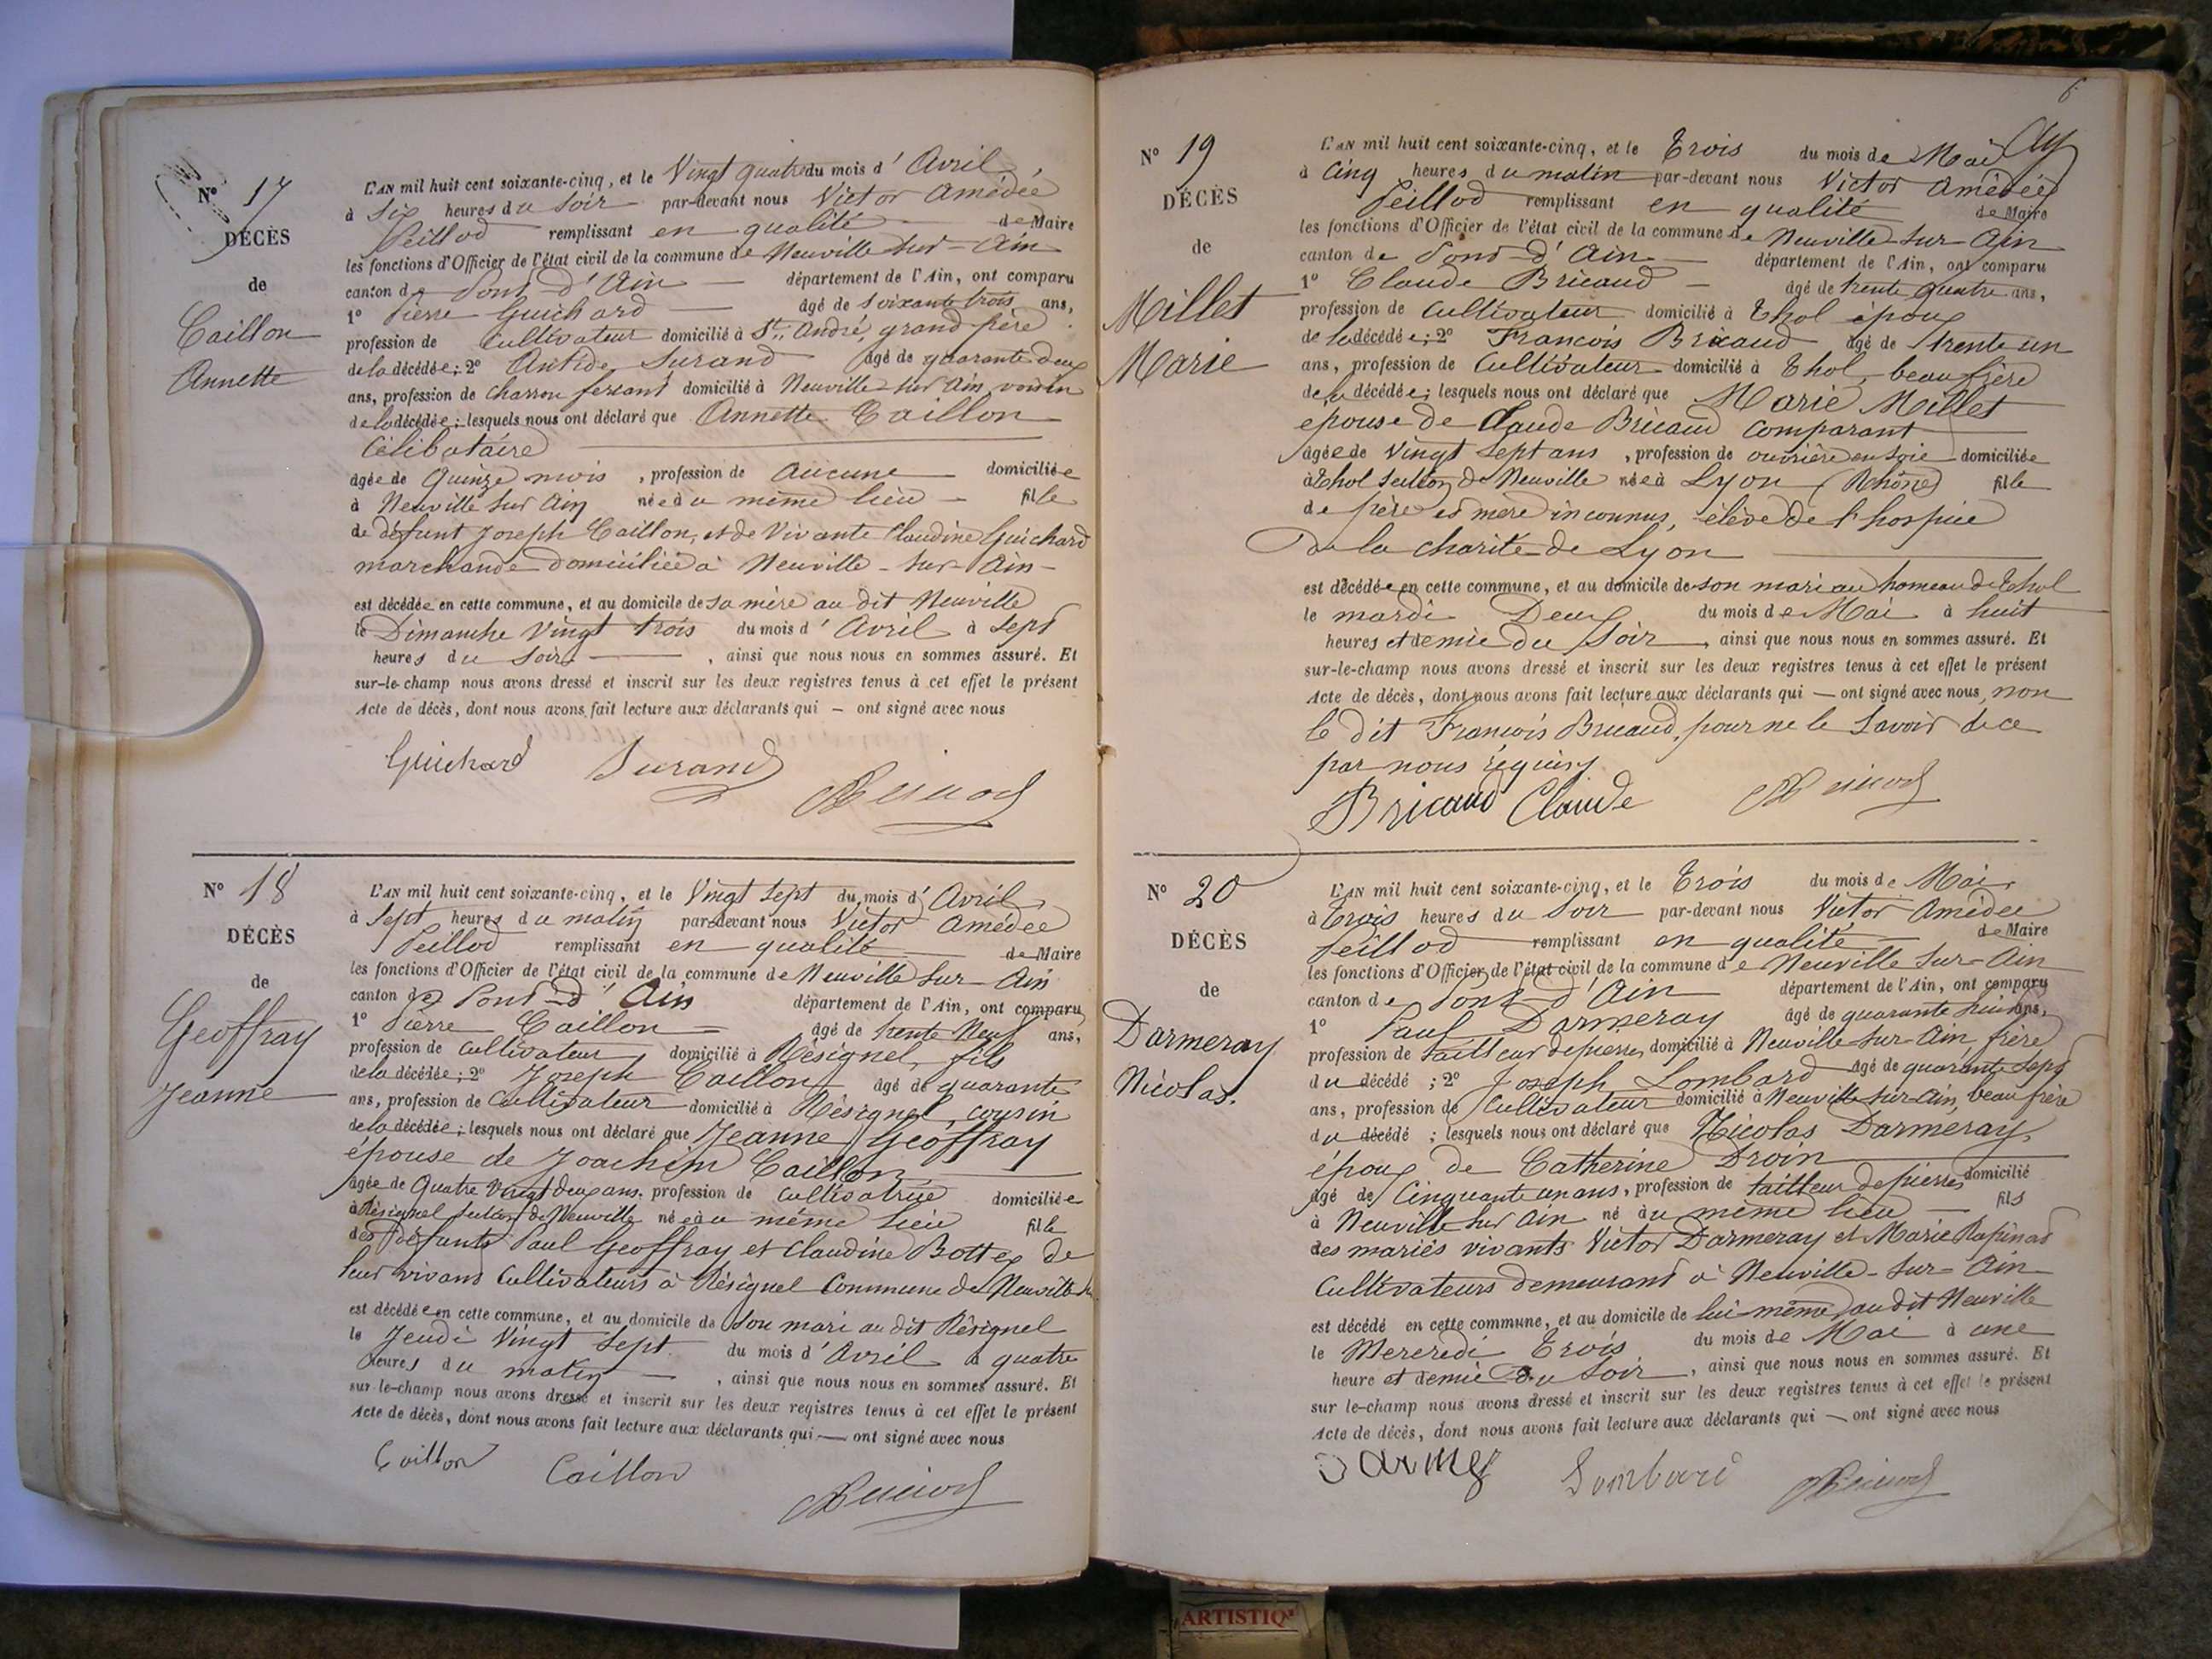 N° 17
DÉCÈS
de
Caillon
Annette
L'AN mil huit cent soixante-cinq, et le Vingt quatre du mois d'Avril,
à Six heures du Soir par-devant nous Victor Amédée
Peillod remplissant en qualité de Maire
les fonctions d'Officier de l'état civil de la commune de Neuville sur-Ain
canton de Pont-d'Ain département de l'Ain, ont comparu
1° Pierre Guichard âgé de soixante trois ans,
profession de Cultivateur domicilié à St André, grand père
de la décédée; 2° Antide Durand âgé de quarante deux
ans, profession de charron ferrant domicilié à Neuville sur Ain, voisin
de la décédée; lesquels nous ont déclaré que Annette Caillon
Célibataire
âgée de Quinze mois, profession de Aucune domiciliée
à Neuville sur Ain née au même lieu fille
de défunt Joseph Caillon, et de Vivante Claudine Guichard
marchande domiciliée à Neuville-sur-Ain-
est décédée en cette commune, et au domicile de sa mère au dit Neuville
le Dimanche Vingt trois du mois d'Avril à Sept
heures du Soir, ainsi que nous nous en sommes assuré. Et
sur-le-champ nous avons dressé et inscrit sur les deux registres tenus à cet effet le présent
Acte de décès, dont nous avons fait lecture aux déclarants qui — ont signé avec nous
Guichard Durand Peillod
N° 18
DÉCÈS
de
Geoffray
Jeanne
L'AN mil huit cent soixante-cinq, et le Vingt Sept du mois d'Avril,
à Sept heures du matin par-devant nous Victor Amédée
Peillod remplissant en qualité de Maire
les fonctions d'Officier de l'état civil de la commune de Neuville sur-Ain
canton de Pont-d'Ain département de l'Ain, ont comparu
1° Pierre Caillon âgé de trente Neuf ans,
profession de Cultivateur domicilié à Résignel, fils
de la décédée; 2° Joseph Caillon âgé de quarante
ans, profession de Cultivateur domicilié à Résignel, cousin
de la décédée; lesquels nous ont déclaré que Jeanne Geoffray
épouse de Joachim Caillon
âgée de Quatre Vingt deux ans, profession de Cultivatrice domiciliée
à Résignel section de Neuville née au même lieu fille
des défunts Paul Geoffray et Claudine Bottex de
leur vivant Cultivateurs à Résignel Commune de Neuville
est décédée en cette commune, et au domicile de Son mari au dit Résignel
le Jeudi Vingt Sept du mois d'Avril à quatre
heures du matin, ainsi que nous nous en sommes assuré. Et
sur-le-champ nous avons dressé et inscrit sur les deux registres tenus à cet effet le présent
Acte de décès, dont nous avons fait lecture aux déclarants qui — ont signé avec nous
Caillon Caillon Peillod
6
N° 19
DÉCÈS
de
Millet
Marie
L'AN mil huit cent soixante-cinq, et le Trois du mois de Mai
à Cinq heures du matin par-devant nous Victor Amédée
Peillod remplissant en qualité de Maire
les fonctions d'Officier de l'état civil de la commune de Neuville-sur-Ain
canton de Pont-d'Ain département de l'Ain, ont comparu
1° Claude Bricaud âgé de trente quatre ans,
profession de Cultivateur domicilié à Thol époux
de la décédée; 2° François Bricaud âgé de trente un
ans, profession de Cultivateur domicilié à Thol, beau frère
de la décédée; lesquels nous ont déclaré que Marie Millet
épouse de Claude Bricaud comparant
âgée de Vingt Sept ans, profession de ouvrière en soie domiciliée
à Thol section de Neuville née à Lyon (Rhône) fille
de père et mère inconnus, élève de l'hospice
de la charité de Lyon
est décédée en cette commune, et au domicile de son mari au hameau de Thol
le mardi Deux du mois de Mai à huit
heures et demie du Soir, ainsi que nous nous en sommes assuré. Et
sur-le-champ nous avons dressé et inscrit sur les deux registres tenus à cet effet le présent
Acte de décès, dont nous avons fait lecture aux déclarants qui — ont signé avec nous, non
le dit François Bricaud, pour ne le Savoir de ce
par nous requis
Bricaud Claude Peillod
N° 20
DÉCÈS
de
Darmeray
Nicolas.
L'AN mil huit cent soixante-cinq, et le Trois du mois de Mai,
à Trois heures du Soir par-devant nous Victor Amédée
Peillod remplissant en qualité de Maire
les fonctions d'Officier de l'état civil de la commune de Neuville Sur-Ain
canton de Pont-d'Ain département de l'Ain, ont comparu
1° Paul Darmeray âgé de quarante huit ans,
profession de tailleur de pierres, domicilié à Neuville-sur-Ain, frère
du décédé; 2° Joseph Lombard âgé de quarante Sept
ans, profession de Cultivateur domicilié à Neuville sur-Ain, beau frère
du décédé; lesquels nous ont déclaré que Nicolas Darmeray,
époux de Catherine Droin
âgé de Cinquante un ans, profession de tailleur de pierres domicilié
à Neuville sur Ain né au même lieu fils
des mariés vivants Victor Darmeray et Marie
Cultivateurs demeurant à Neuville-sur-Ain
est décédé en cette commune, et au domicile de lui-même, au dit Neuville
le Mercredi Trois du mois de Mai à une
heure et demie du Soir, ainsi que nous nous en sommes assuré. Et
sur-le-champ nous avons dressé et inscrit sur les deux registres tenus à cet effet le présent
Acte de décès, dont nous avons fait lecture aux déclarants qui — ont signé avec nous
Lombard Peillod
ARTISTIQ